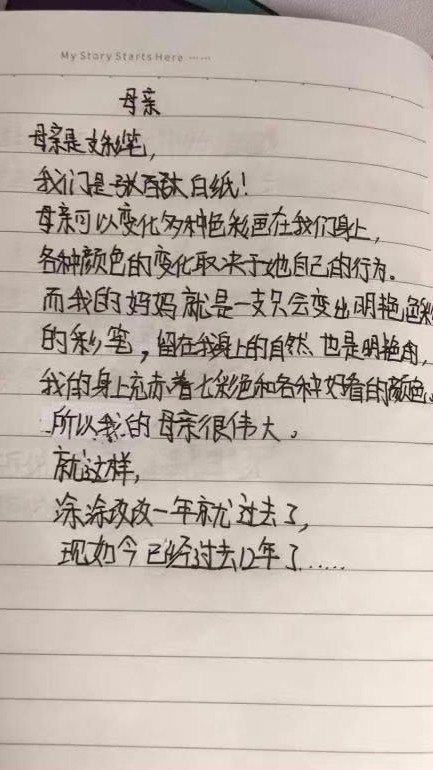 My Story Starts Here ······
母亲
母亲是支彩笔,
我们是张百款白纸!
母亲可以变化多种色彩画在我们身上,
各种颜色的变化取决于她自己的行为。
而我的妈妈就是一支只会变出明艳色彩
的彩笔,留在我身上的自然也是明艳的,
我的身上充赤着七彩色和各种好看的颜色。
所以我的母亲很伟大。
就这样,
涂涂改改一年就过去了,
现如今已经过去12年了.....